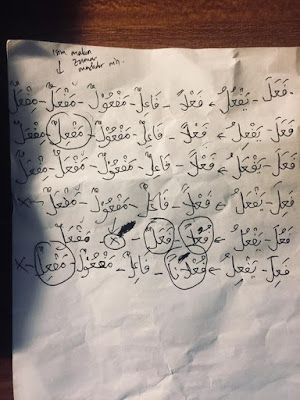 ism makan
zaman
masdar mim.
فَعَلَ - يَفْعُلُ ← فَعْلاً - فَاعِلٌ - مَفْعُوْلٌ - مَفْعَلٌ - مَفْعَلٌ
فَعَلَ - يَفْعِلُ ← فَعْلاً - فَاعِلٌ - مَفْعُوْلٌ - مَفْعِلٌ - مَفْعَلٌ
فَعَلَ - يَفْعَلُ ← فَعْلاً - فَاعِلٌ - مَفْعُوْلٌ - مَفْعَلٌ - مَفْعَلٌ
فَعِلَ - يَفْعَلُ ← فَعْلاً - فَاعِلٌ - مَفْعُوْلٌ - مَفْعَلٌ - x
فَعُلَ - يَفْعُلُ ← فُعْلاً - فَعَلٌ - x - مَفْعَلٌ
فَعِلَ - يَفْعِلُ ← فِعْلَاناً - فَاعِلٌ - مَفْعُوْلٌ - مَفْعِلٌ - x